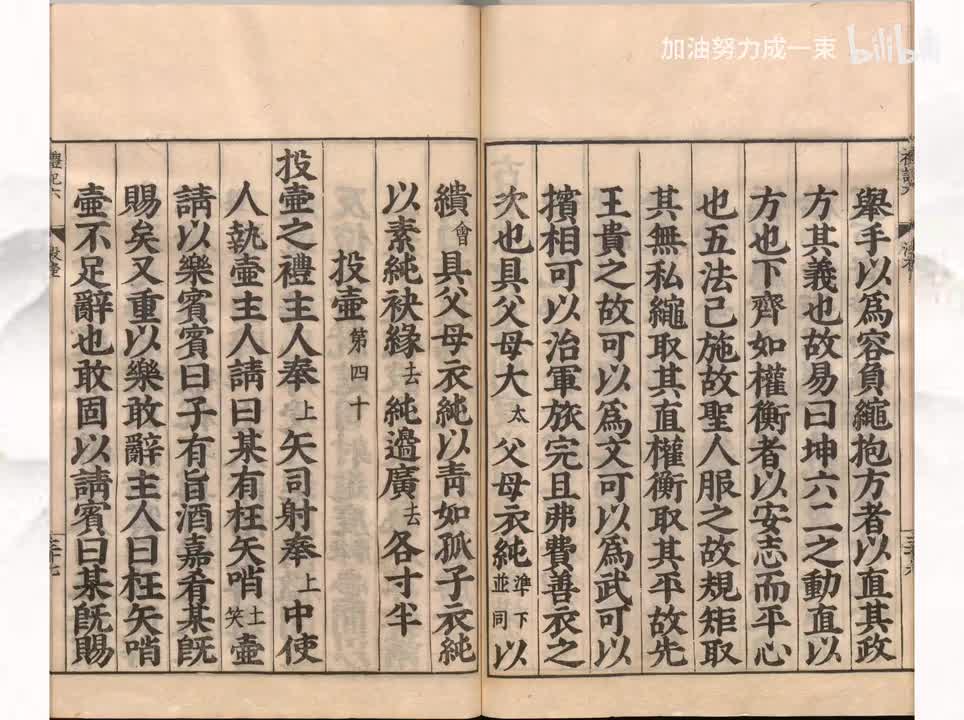 加油努力成一束 bilibili
舉手以爲容負繩抱方者以直其政
方其義也故易曰坤六二之動直以
方也下齊如權衡者以安志而平心
也五法已施故聖人服之故規矩取
其無私繩取其直權衡取其平故先
王貴之故可以爲文可以爲武可以
擯相可以治軍旅完且弗費善衣之
次也具父母大太父母衣純準下並同以
繢會具父母衣純以青如孤子衣純
以素純袂緣去純邉廣去各寸半
投壷第四十
投壷之禮主人奉上矢司射奉上中使
人執壷主人請曰某有枉矢哨土笑壷
請以樂賓賓曰子有旨酒嘉肴某旣
賜矣又重以樂敢辭主人曰枉矢哨
壷不足辭也敢固以請賓曰某旣賜
禮記六
投壷